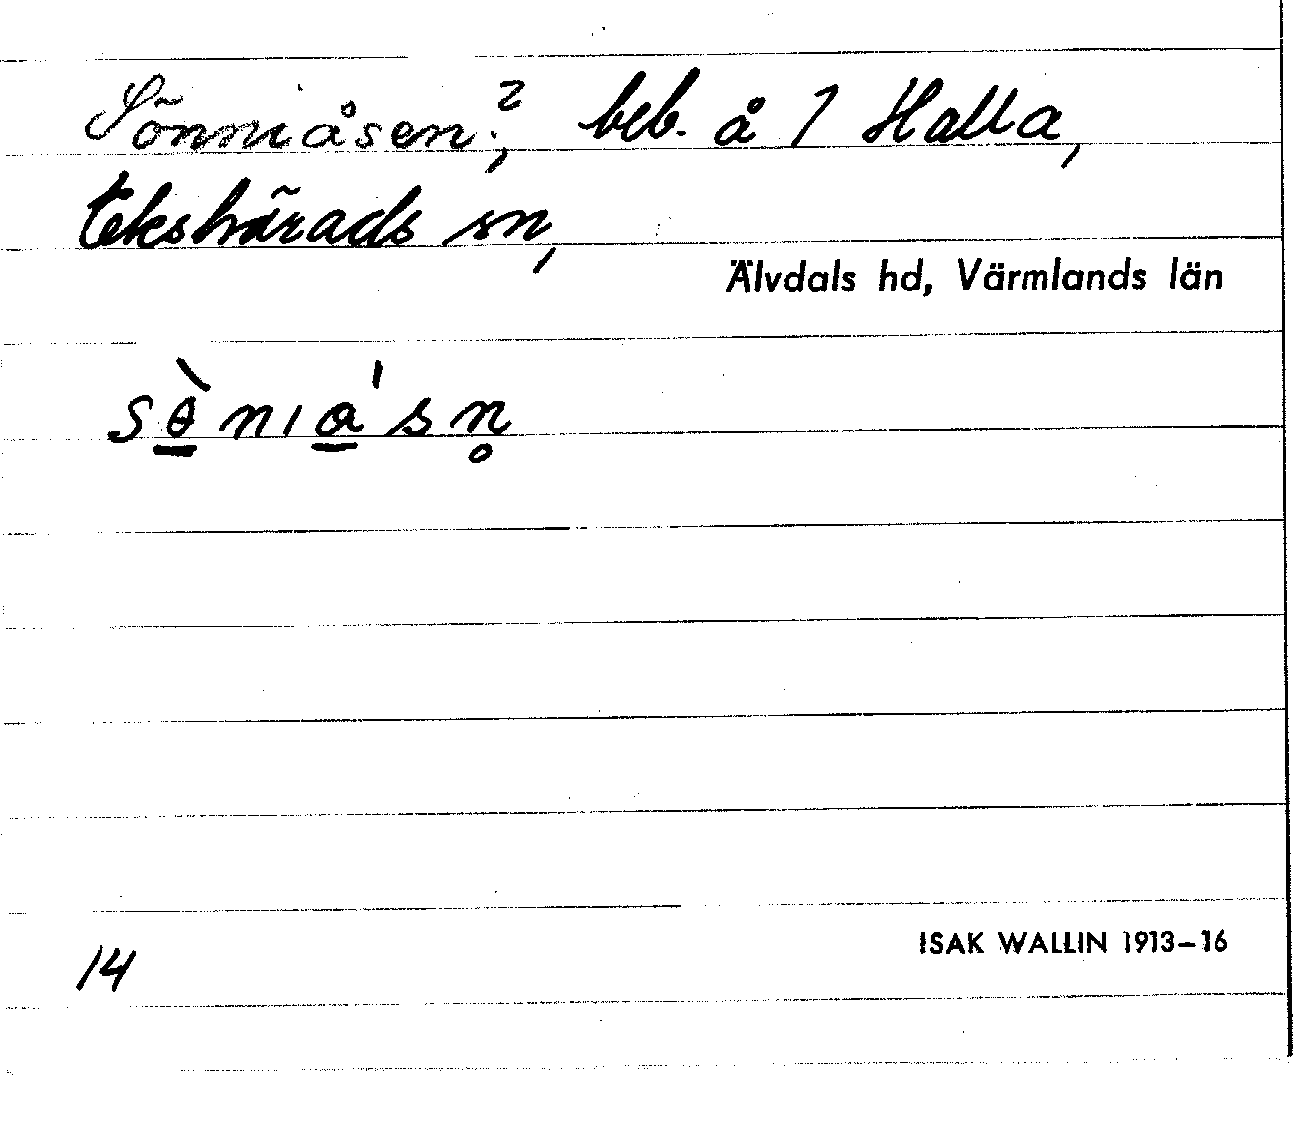 Sönniåsen?, beb. å 1 Halla,
Ekshärads sn,
Älvdals hd, Värmlands län
sὲniåˈsn̥
14
ISAK WALLIN 1913–16